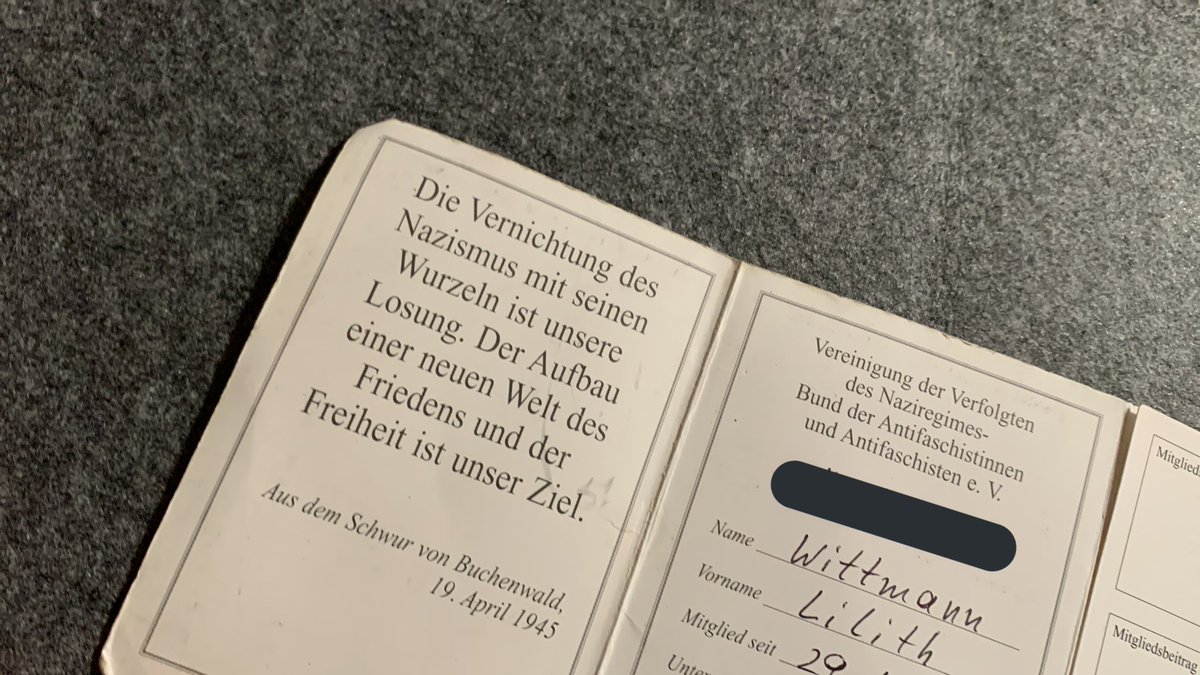 Die Vernichtung des
Nazismus mit seinen
Wurzeln ist unsere
Losung. Der Aufbau
einer neuen Welt des
Friedens und der
Freiheit ist unser Ziel.
Aus dem Schwur von Buchenwald,
19. April 1945
Vereinigung der Verfolgten
des Naziregimes-
Bund der Antifaschistinnen
und Antifaschisten e. V.
Name Wittmann
Vorname Lilith
Mitglied seit 29
Mitgliedsbeitrag